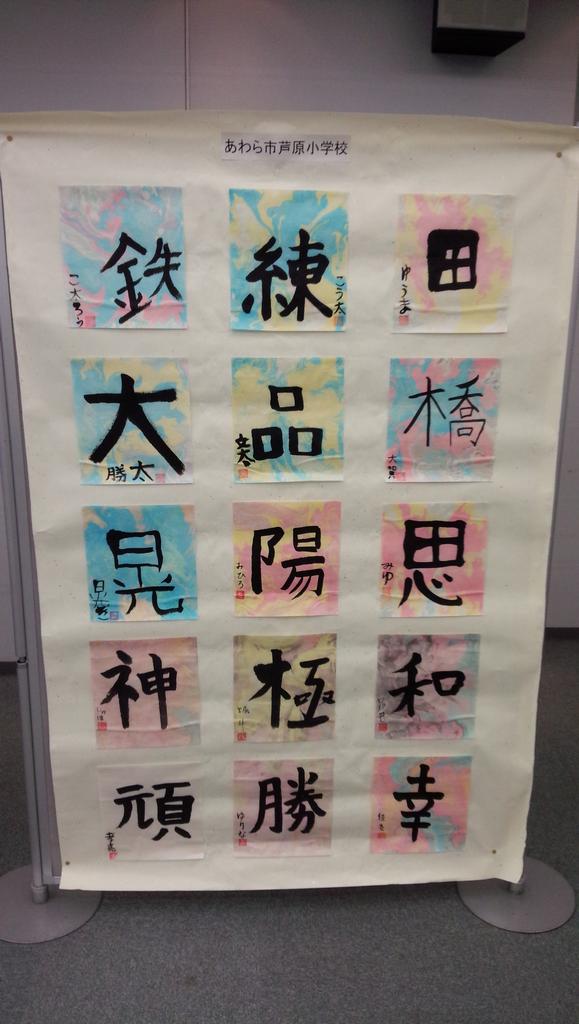 あわら市芦原小学校
鉄 練 田
こ太ろう こう太 ゆうま
大 品 橋
勝太 太賀
晃 陽 思
みひろ みゆ
神 極 和
頑 勝 幸
ゆりな